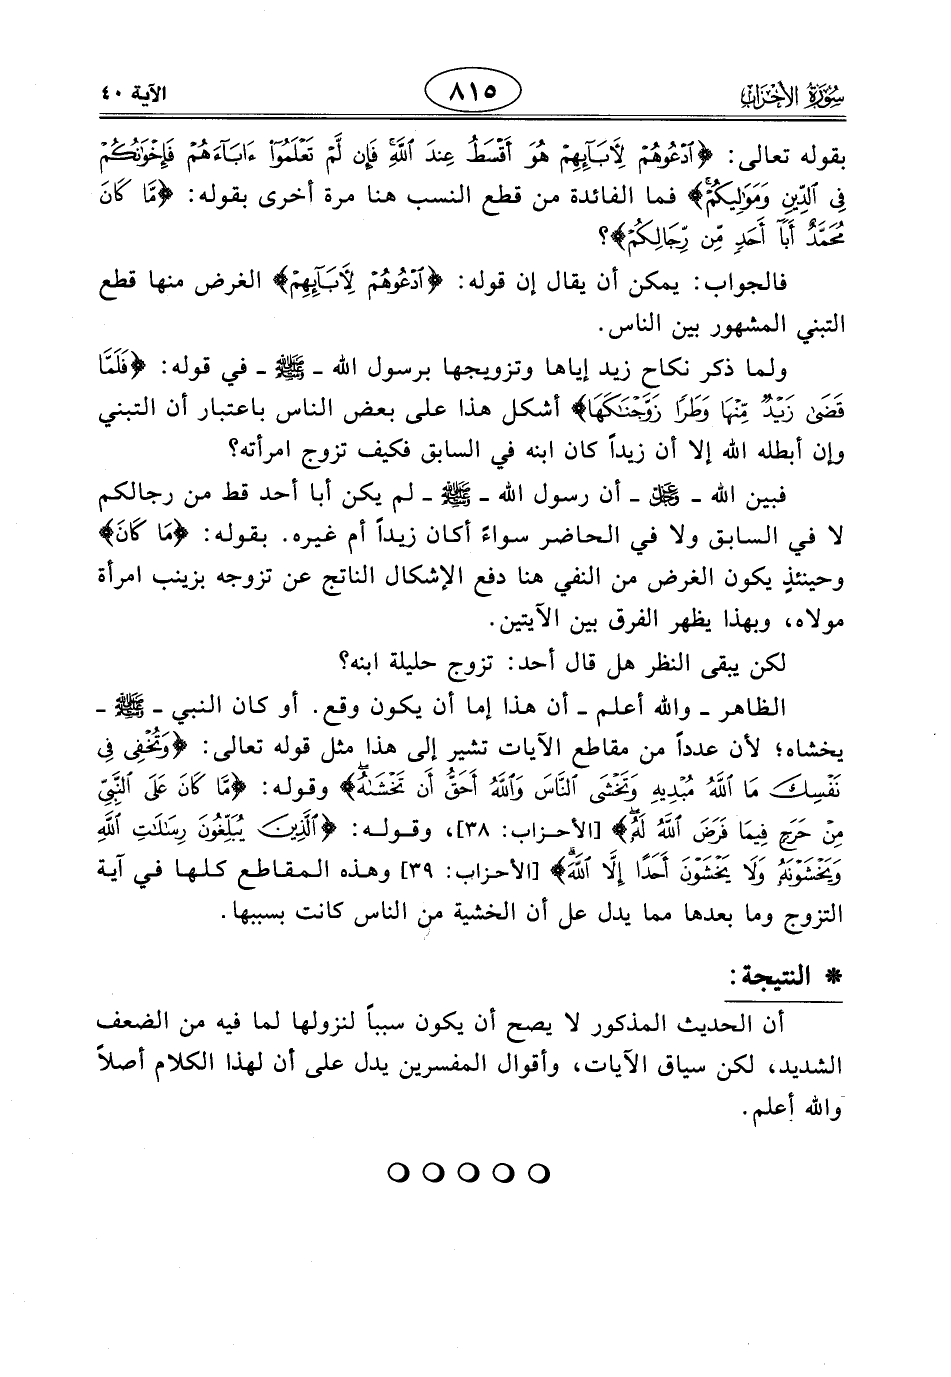 سورة الأحزاب ٨١٥ الآية ٤٠
بقوله تعالى: ﴿ٱدْعُوهُمْ لِأَبَآئِهِمْ هُوَ أَقْسَطُ عِندَ ٱللَّهِ فَإِن لَّمْ تَعْلَمُوٓا۟ ءَابَآءَهُمْ فَإِخْوَٰنُكُمْ
فِى ٱلدِّينِ وَمَوَٰلِيكُمْ﴾ فما الفائدة من قطع النسب هنا مرة أخرى بقوله: ﴿مَّا كَانَ
مُحَمَّدٌ أَبَآ أَحَدٍ مِّن رِّجَالِكُمْ﴾؟
فالجواب: يمكن أن يقال إن قوله: ﴿ٱدْعُوهُمْ لِأَبَآئِهِمْ﴾ الغرض منها قطع
التبني المشهور بين الناس.
ولما ذكر نكاح زيد إياها وتزويجها برسول الله ـ ﷺ ـ في قوله: ﴿فَلَمَّا
قَضَىٰ زَيْدٌ مِّنْهَا وَطَرًا زَوَّجْنَٰكَهَا﴾ أشكل هذا على بعض الناس باعتبار أن التبني
وإن أبطله الله إلا أن زيداً كان ابنه في السابق فكيف تزوج امرأته؟
فبين الله ـ عز وجل ـ أن رسول الله ـ ﷺ ـ لم يكن أبا أحد قط من رجالكم
لا في السابق ولا في الحاضر سواءً أكان زيداً أم غيره. بقوله: ﴿مَا كَانَ﴾
وحينئذٍ يكون الغرض من النفي هنا دفع الإشكال الناتج عن تزوجه بزينب امرأة
مولاه، وبهذا يظهر الفرق بين الآيتين.
لكن يبقى النظر هل قال أحد: تزوج حليلة ابنه؟
الظاهر ـ والله أعلم ـ أن هذا إما أن يكون وقع. أو كان النبي ـ ﷺ ـ
يخشاه؛ لأن عدداً من مقاطع الآيات تشير إلى هذا مثل قوله تعالى: ﴿وَتُخْفِى فِى
نَفْسِكَ مَا ٱللَّهُ مُبْدِيهِ وَتَخْشَى ٱلنَّاسَ وَٱللَّهُ أَحَقُّ أَن تَخْشَىٰهُ﴾ وقوله: ﴿مَّا كَانَ عَلَى ٱلنَّبِىِّ
مِنْ حَرَجٍ فِيمَا فَرَضَ ٱللَّهُ لَهُۥ﴾ [الأحزاب: ٣٨]، وقوله: ﴿ٱلَّذِينَ يُبَلِّغُونَ رِسَٰلَٰتِ ٱللَّهِ
وَيَخْشَوْنَهُۥ وَلَا يَخْشَوْنَ أَحَدًا إِلَّا ٱللَّهَ﴾ [الأحزاب: ٣٩] وهذه المقاطع كلها في آية
التزوج وما بعدها مما يدل عل أن الخشية من الناس كانت بسببها.
* النتيجة:
أن الحديث المذكور لا يصح أن يكون سبباً لنزولها لما فيه من الضعف
الشديد، لكن سياق الآيات، وأقوال المفسرين يدل على أن لهذا الكلام أصلاً
والله أعلم.